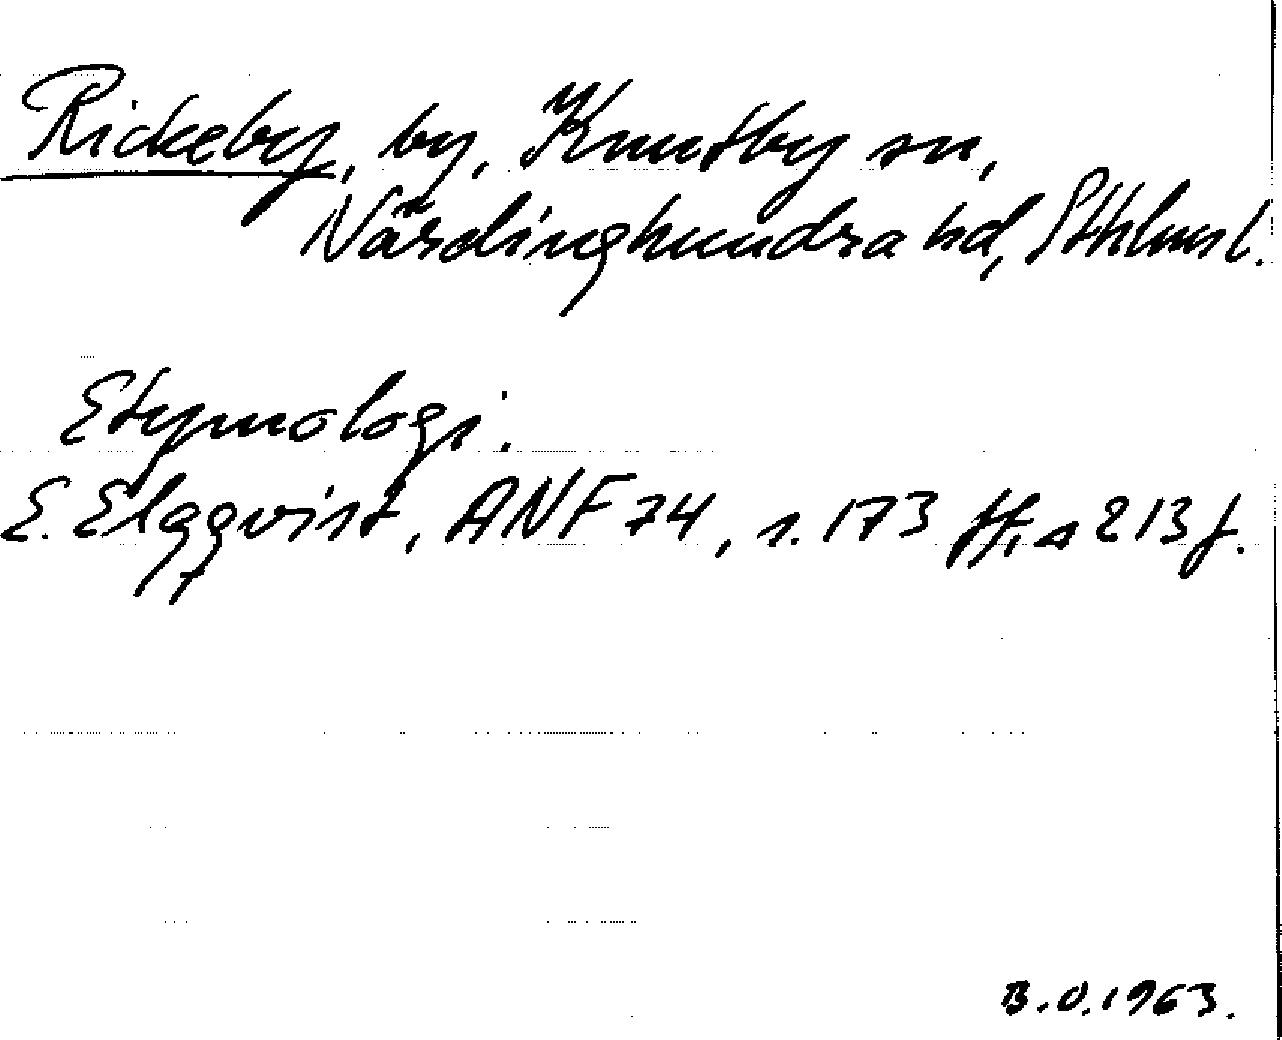 Rickeby, by, Knutby sn,
Närdinghundra hd, Sthlms l.
Etymologi.
E. Elqqvist, ANF 74, s. 173 ff, s 213 f.
B.O. 1963.